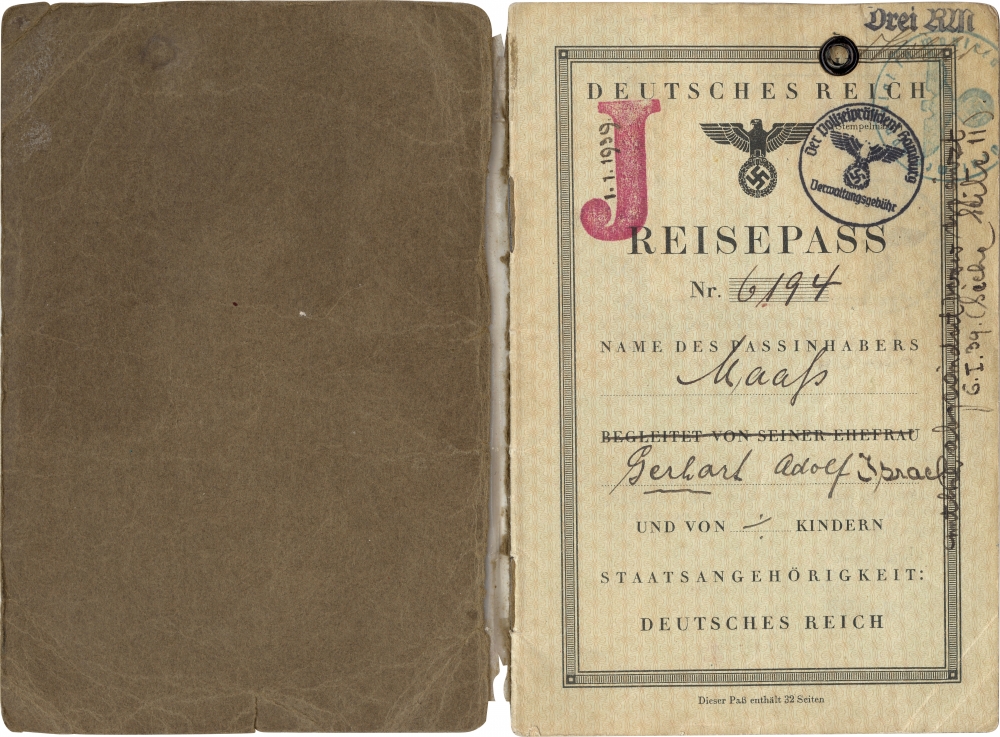 Drei RM
DEUTSCHES REICH
J
1.1.1939
Stempelmarke
Der Polizeipräsident Hamburg
Verwaltungsgebühr
REISEPASS
Nr. 6194
NAME DES PASSINHABERS
Maaß
BEGLEITET VON SEINER EHEFRAU
Gerhart Adolf Israel
UND VON ÷ KINDERN
STAATSANGEHÖRIGKEIT:
DEUTSCHES REICH
Dieser Paß enthält 32 Seiten
6.I.39. (Siehe Seite 11).